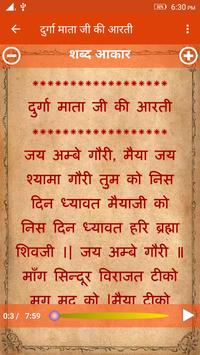 6:30 PM
दुर्गा माता जी की आरती
शब्द आकार
********************
दुर्गा माता जी की आरती
********************
जय अम्बे गौरी, मैया जय
श्यामा गौरी तुम को निस
दिन ध्यावत मैयाजी को
निस दिन ध्यावत हरि ब्रह्मा
शिवजी || जय अम्बे गौरी ॥
माँग सिन्दूर विराजत टीको
मृग मद को |मैया टीको
0:3 / 7:59